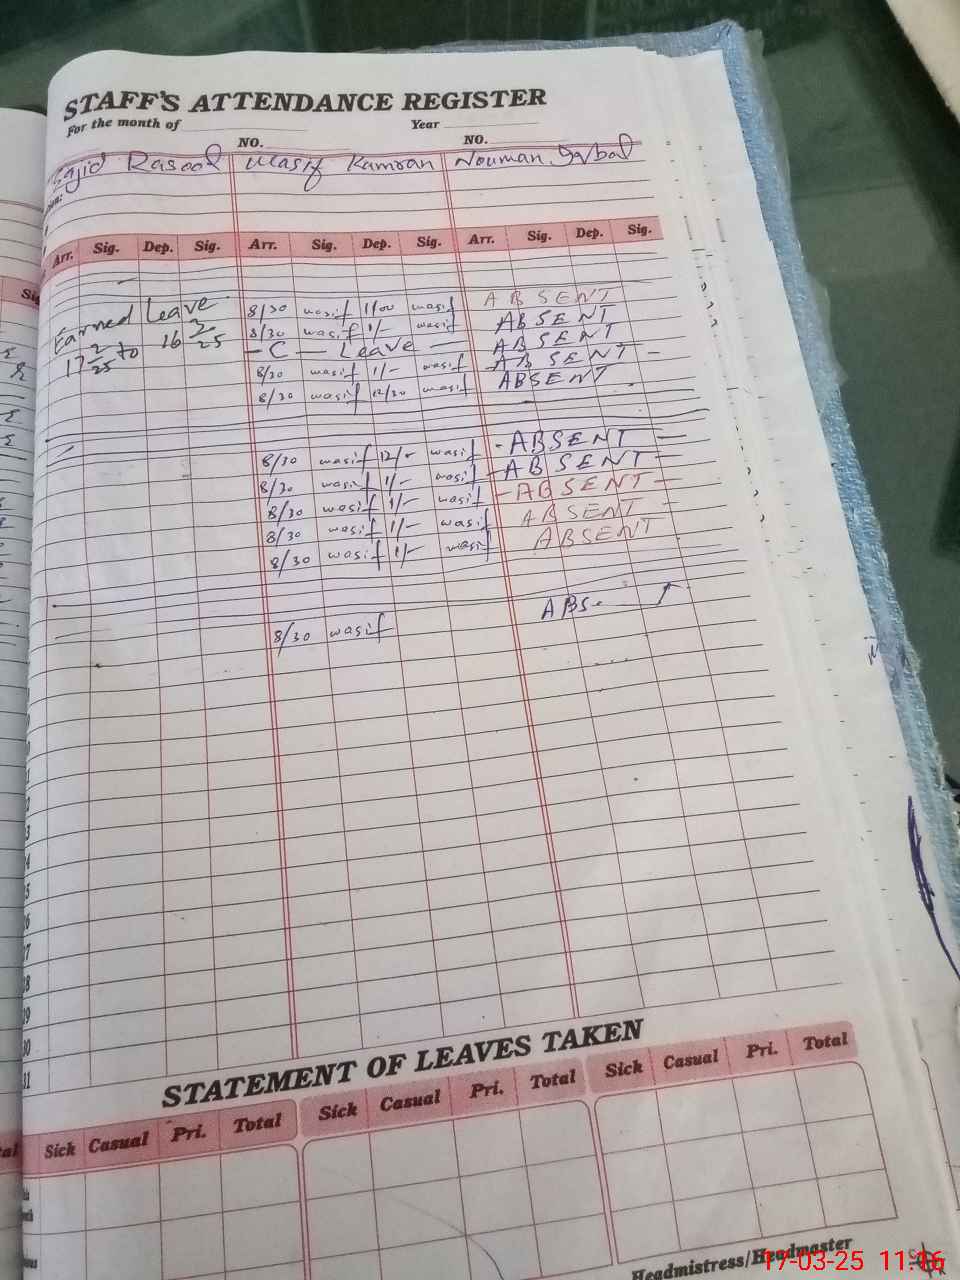 STAFF'S ATTENDANCE REGISTER
For the month of Year
NO. NO.
Sajid Rasool Wasif Kamran Nouman Iqbal
Arr. Sig. Dep. Sig. Arr. Sig. Dep. Sig. Arr. Sig. Dep. Sig.
Earned Leave 8/30 wasif 1/00 wasif ABSENT
17 2/25 to 16 3/25 8/30 wasif 1/- wasif ABSENT
- C - Leave - ABSENT
8/30 wasif 1/- wasif ABSENT -
8/30 wasif 12/30 wasif ABSENT
8/30 wasif 12/- wasif - ABSENT -
8/30 wasif 1/- wasif - ABSENT -
8/30 wasif 1/- wasif - ABSENT -
8/30 wasif 1/- wasif ABSENT
8/30 wasif 1/- wasif ABSENT
8/30 wasif ABS
31
STATEMENT OF LEAVES TAKEN
Sick Casual Pri. Total Sick Casual Pri. Total Sick Casual Pri. Total
Headmistress/Headmaster
17-03-25 11:16